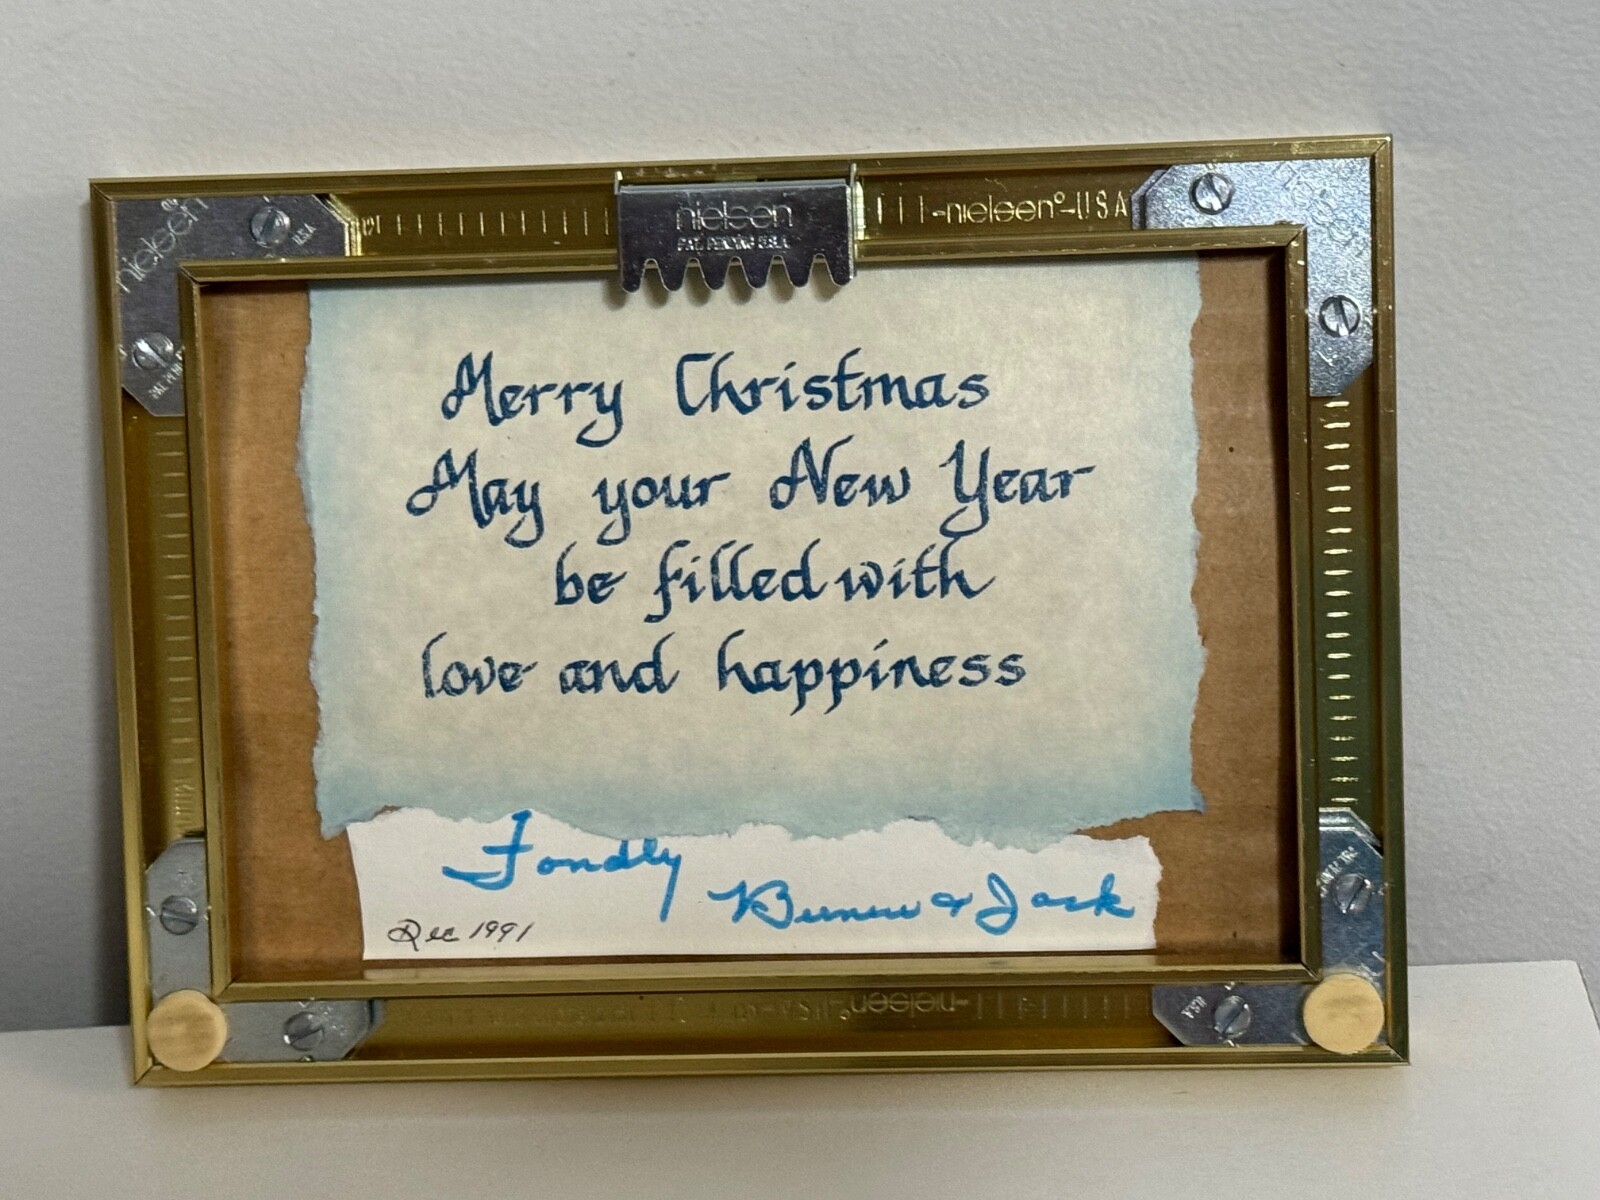 nielsen
USA
nielsen
PAT. PENDING U.S.A.
-nielsen®-USA
Merry Christmas
May your New Year
be filled with
love and happiness
Fondly
& Jack
Dec 1991